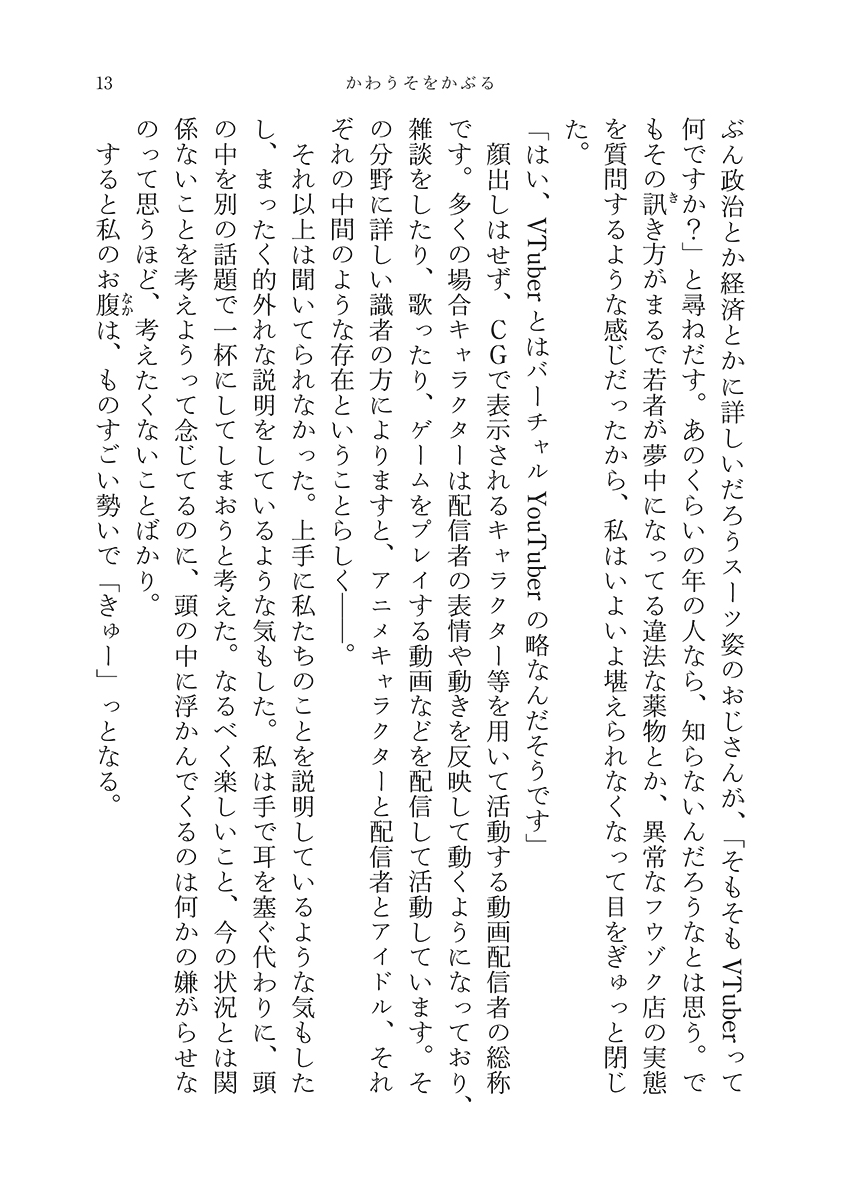 13
かわうそをかぶる
ぶん政治とか経済とかに詳しいだろうスーツ姿のおじさんが、「そもそもVTuberって
何ですか？」と尋ねだす。あのくらいの年の人なら、知らないんだろうなとは思う。で
もその訊き方がまるで若者が夢中になってる違法な薬物とか、異常なフウゾク店の実態
を質問するような感じだったから、私はいよいよ堪えられなくなって目をぎゅっと閉じ
た。
「はい、VTuberとはバーチャルYouTuberの略なんだそうです」
　顔出しはせず、CGで表示されるキャラクター等を用いて活動する動画配信者の総称
です。多くの場合キャラクターは配信者の表情や動きを反映して動くようになっており、
雑談をしたり、歌ったり、ゲームをプレイする動画などを配信して活動しています。そ
の分野に詳しい識者の方によりますと、アニメキャラクターと配信者とアイドル、それ
ぞれの中間のような存在ということらしく――。
　それ以上は聞いてられなかった。上手に私たちのことを説明しているような気もした
し、まったく的外れな説明をしているような気もした。私は手で耳を塞ぐ代わりに、頭
の中を別の話題で一杯にしてしまおうと考えた。なるべく楽しいこと、今の状況とは関
係ないことを考えようって念じてるのに、頭の中に浮かんでくるのは何かの嫌がらせな
のって思うほど、考えたくないことばかり。
　すると私のお腹は、ものすごい勢いで「きゅー」っとなる。
き
なか